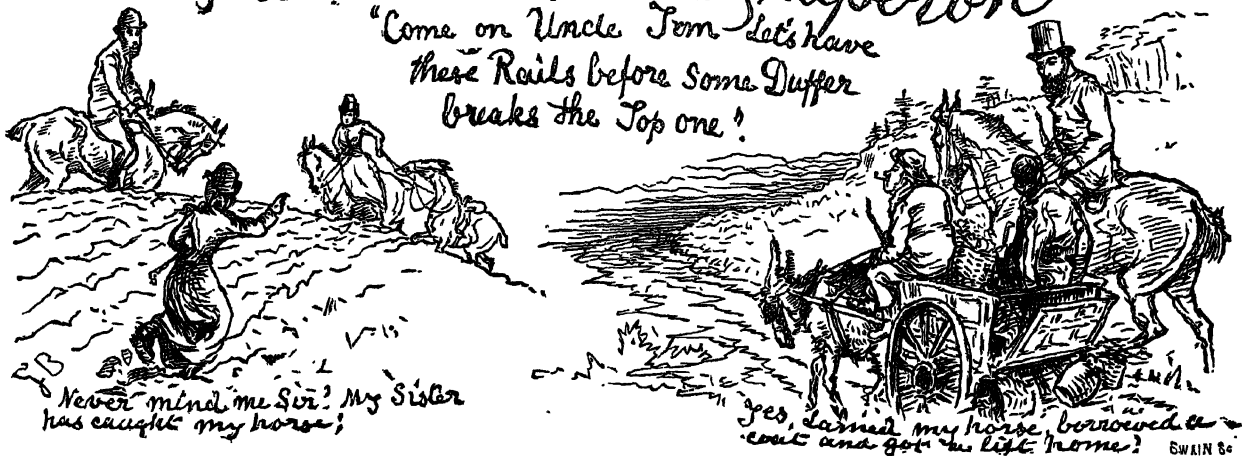 "Come on Uncle Tom Let's have
these Rails before some Duffer
breaks the Top one!"
Never mind me Sir! My Sister
has caught my horse!
Yes, Lamed my horse, borrowed a
coat and got a lift home!
SWAIN Sc